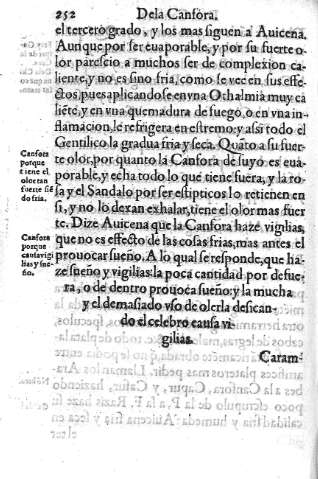 252 De la Canfora.
el tercero grado, y los mas siguen a Auicena.
Aunque por ser euaporable, y por su fuerte o-
lor parescio a muchos ser de complexion ca-
liente, y no es sino fria, como se vee en sus effe-
ctos, pues aplicandose en vna Othalmia muy ca
liẽte, y en vna quemadura de fuego, o en vna in-
flamacion, le refrigera en estremo: y asi todo el
Gentilico la gradua fria y seca. Quãto a su fuer-
te olor, por quanto la Canfora de suyo es eua-
porable, y echa todo lo que tiene fuera, y la ro-
sa y el Sandalo por ser estipticos lo retienen en
si, y no lo dexan exhalar, tiene el olor mas fuer
te. Dize Auicena que la Canfora haze vigilias,
que no es effecto de las cosas frias, mas antes el
prouocar sueño. A lo qual se responde, que há-
ze sueño y vigilias: la poca cantidad por defue-
ra, o de dentro prouoca sueño: y la mucha
y el demasiado vso de olerla desican-
do el celebro causa vi-
gilias.
Caram-
Canfora
porque
tiene el
olor tan
fuerte siẽ
do fria.
Canfora
porque
causa vigi
lias y sue-
ño.